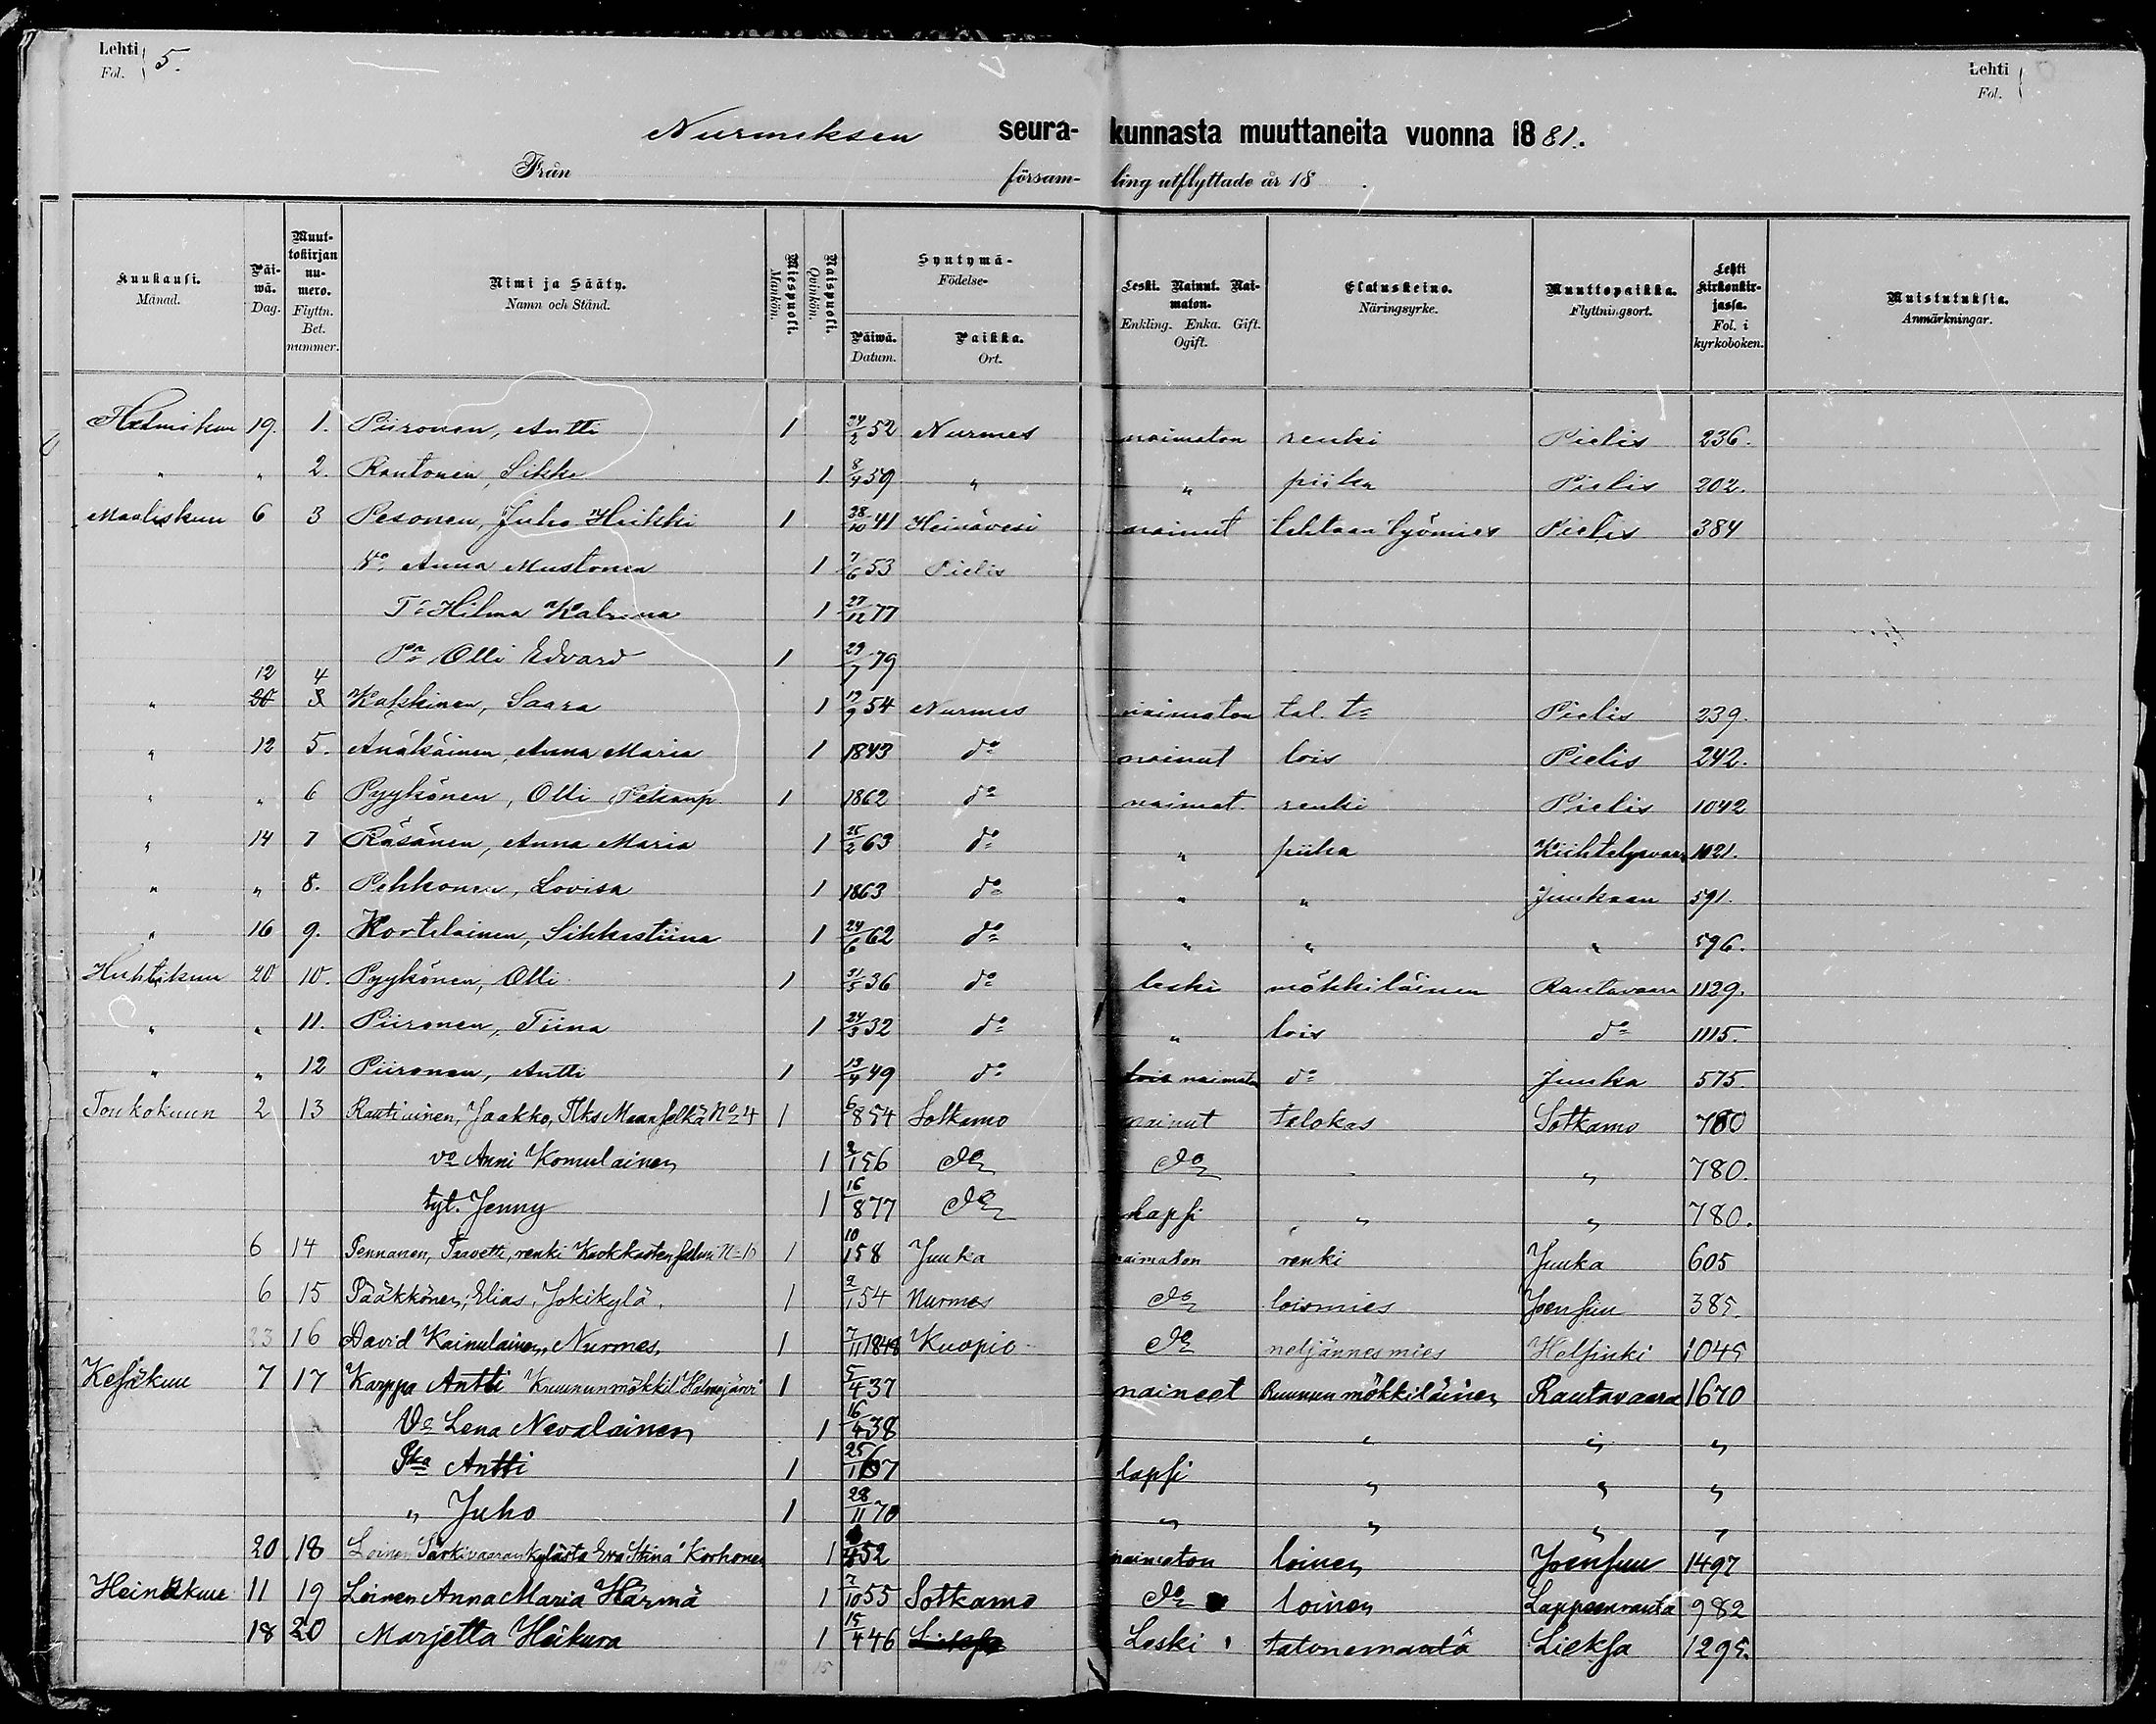 Lehti Fol. 5.
Lehti Fol.
Nurmeksen seurakunnasta muuttaneita vuonna 1881.
Från församling utflyttade år 18 .
Kuukausi. Månad. Päiwä. Dag. Muuttokirjan numero. Flyttn. Bet. nummer. Nimi ja Sääty. Namn och Stånd. Miespuoli. Mankön. Naispuoli. Qvinkön. Syntymä- Födelse- Päiwä. Datum. Paikka. Ort. Leski. Nainut. Naimaton. Enkling. Enka. Gift. Ogift. Elatuskeino. Näringsyrke. Muuttopaikka. Flyttningsort. Lehti kirkonkirjassa. Fol. i kyrkoboken. Muistutuksia. Anmärkningar.
Helmikuu 19. 1. Piironen, Antti 1 52 Nurmes naimaton renki Pielis 236.
" " 2. Rantonen, Sikke 1. 8/4 59 " " piika Pielis 202.
Maaliskuu 6 3 Pesonen, Juho Heikki 1 28/10 41 Heinävesi nainut tehtaan työmies Pielis 384
Vo Anna Mustonen 1 7/6 53 Pielis
Tr Hilma Katriina 1 27/12 77
Pa Olli Edvard 1 29/7 79
" 12 4 Kukkinen, Saara 1 19/9 54 Nurmes naimaton tal. tr Pielis 239.
" 12 5. Anäkäinen, Anna Maria 1 1843 do nainut lois Pielis 242.
" " 6 Pyykönen, Olli Pekanp. 1 1862 do naimat. renki Pielis 1042
" 14 7 Räsänen, Anna Maria 1 25/2 63 do " piika Kiihtelysvaara 1021.
" " 8. Pehkonen, Lovisa 1 1863 do " " Juukaan 591.
" 16 9. Kortelainen, Sikkestiina 1 24/6 62 do " " " 596.
Huhtikuu 20 10. Pyykönen, Olli 1 31/5 36 do leski mökkiläinen Rautavaara 1129.
" " 11. Piironen, Tiina 1 24/3 32 do " lois do 1115.
" " 12 Piironen, Antti 1 13/4 49 do lois naimaton do Juuka 575.
Toukokuun 2 13 Rautiainen, Jaakko, Tlks Maanselkä No 4 1 6/8 54 Sotkamo nainut talokas Sotkamo 780
vo Anni Komulainen 1 2/1 56 do do " 780.
tyt. Jenny 1 16/8 77 do lapsi " " 780.
6 14 Pennanen, Taavetti, renki Kuokkastensalmi No 16 1 10/1 58 Juuka naimaton renki Juuka 605
6 15 Pääkkönen, Elias, Jokikylä. 1 2/1 54 Nurmes do loismies Joensuu 385.
23 16 David Kainulainen, Nurmes, 1 7/11 1848 Kuopio do neljännesmies Helsinki 1045
Kesäkuu 7 17 Karppa Antti Kruununmökkil. Halmejärvi 1 5/4 37 naineet Ruunun mökkiläinen Rautavaara 1670
Vo Lena Nevalainen 1 16/4 38 " " "
Pka Antti 1 25/1 67 lapsi " " "
" Juho 1 28/11 70 " " " "
20 18 Loinen Särkivaarankylästä Eva Stina Korhonen 1 52 naimaton loinen Joensuu 1497
Heinäkuu 11 19 Loinen Anna Maria Härmä 1 7/10 55 Sotkamo do loinen Lappeenranta 982
18 20 Marjetta Heikura 1 15/4 46 Lieksa Leski talonemäntä Lieksa 1295.